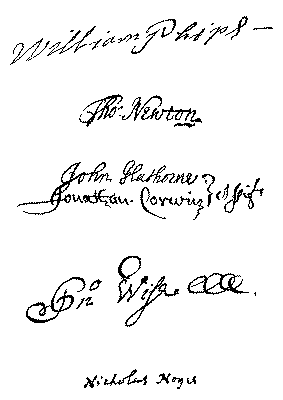 William Phips
Tho: Newton
John Hathorne
Jonathan. Corwin
Jno Wise
Nicholas Noyes